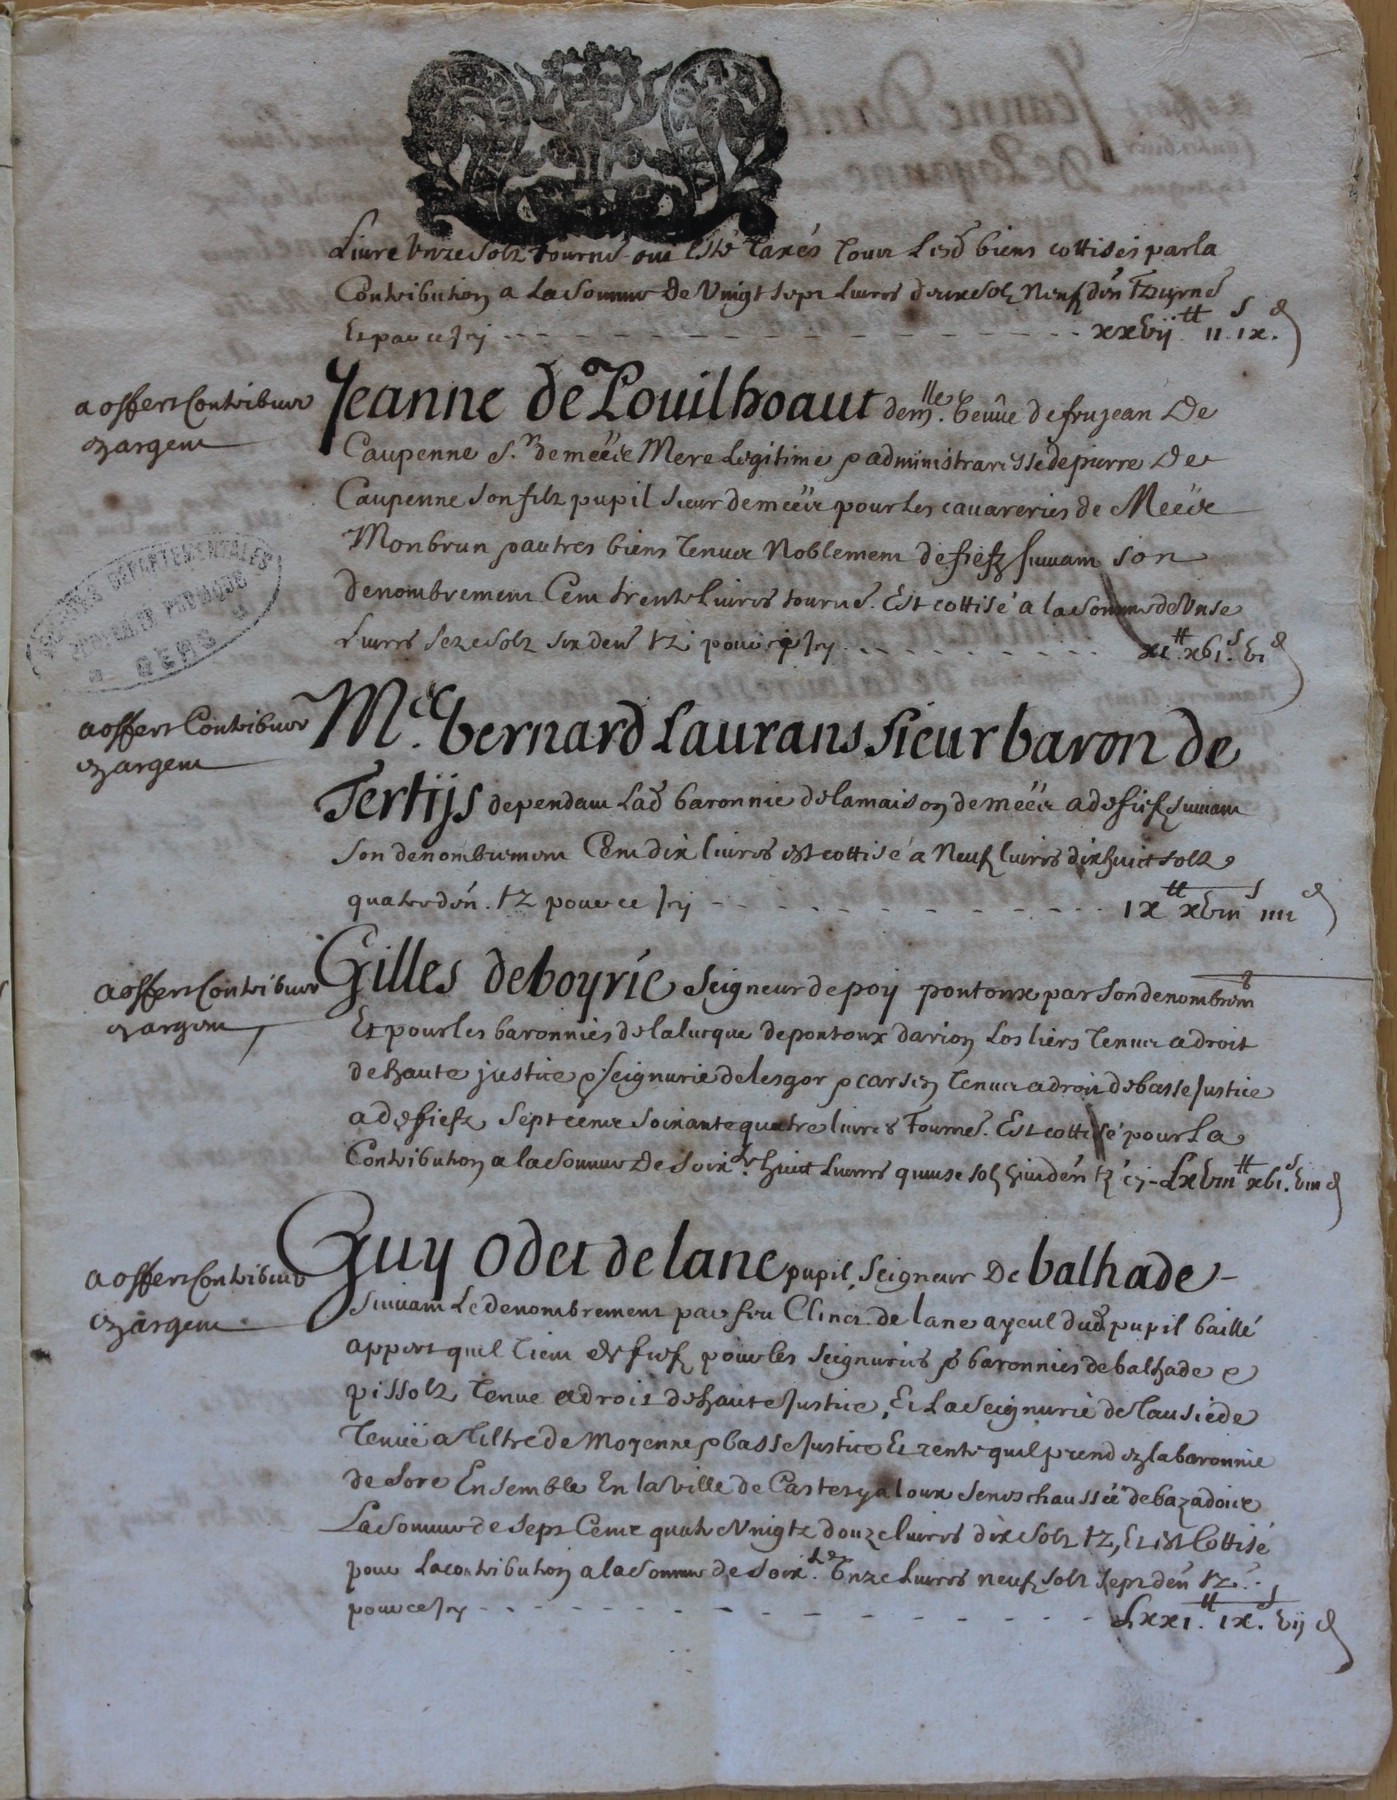 Livre unze solz tourns. ont esté taxés tous lesd biens cottisés par la
Contribution a la somme de vingt sept livres deux solz neuf den tourns
Et pour ce Icy xxvij tt ii s ix d
a offert Contribuer
en argent
Jeanne de Pouilhoaut dem lle veuve de feu jean De
Caupenne Sr de meés Mere legitime & administraresse de pierre De
Caupenne son filz pupil sieur de meés pour les cavareries de Meés
Monbrun & autres biens tenus Noblement de fiefz suivant son
denombrement Cent trente livres tourns. Est cottisé a la somme de Unse
Livres seze solz six dens tz pour ce Icy xi tt xvi s vi d
a offert Contribuer
en argent
Me. bernard Laurans sieur baron de
Tertijs dependant lad baronnie de la maison de meés a de fiefz suivant
son denombrement Cent dix livres est cottisé a Neuf livres dix huit solz
quatre den. tz pour ce Icy ix tt xviii s iiii d
a offert Contribuer
en argent
Gilles de boyrie Seigneur de poy pontoux par son denombremt
Et pour les baronnies de la lucque de pontoux darion Losliers tenus a droit
de haute justice & seigneurie de lesgor & carsen tenus a droit de basse Justice
a de fiefz sept cens soixante quatre livres Tourns. Est cottisé pour La
Contribution a la somme De soixte. huit Livres quinse solz huit den tz cy Lxviii tt xvi s viii d
a offert Contribuer
en argent
Guy Odet de lane pupil Seigneur De balhade
suivant Le denombrement par feu Clinet de lane ayeul dud pupil baillé
appert quil tient de fief pour les seigneuries & baronnies de balhade &
pissolz tenue a droit de haute Justice, Et La seigneurie de Tausiede
tenuë a tiltre de Moyenne & basse Justice Et rente quil prend en la baronnie
de sore Ensemble En la ville de Castetyaloux senechaussée de bazadois
La somme de sept Cens quatre vingtz douze livres dix solz tz, Et est Cottisé
pour la contribution a la somme de soixte. Unze livres neuf solz sept den tz
pour ce Icy Lxxi tt ix s vij d
ARCHIVES DEPARTEMENTALES
GERS